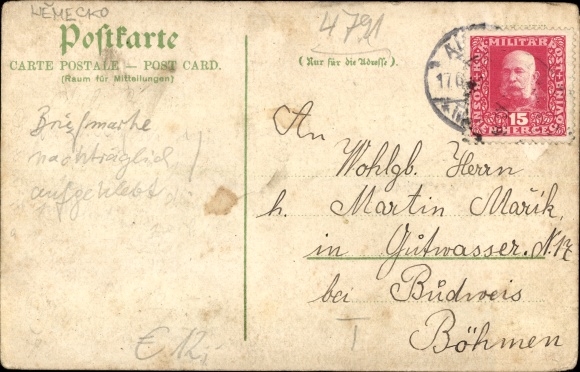 NĚMECKO
4791
Postkarte
CARTE POSTALE — POST CARD.
(Raum für Mitteilungen)
(Nur für die Adresse).
MILITÄR
POST
15
HERCEG
17
Briefmarke
nachträglich
aufgeklebt !
An
Wohlgb. Herrn
h. Martin Mařik,
in Gutwasser. N. 17
bei Budweis
Böhmen
€ 12,
I